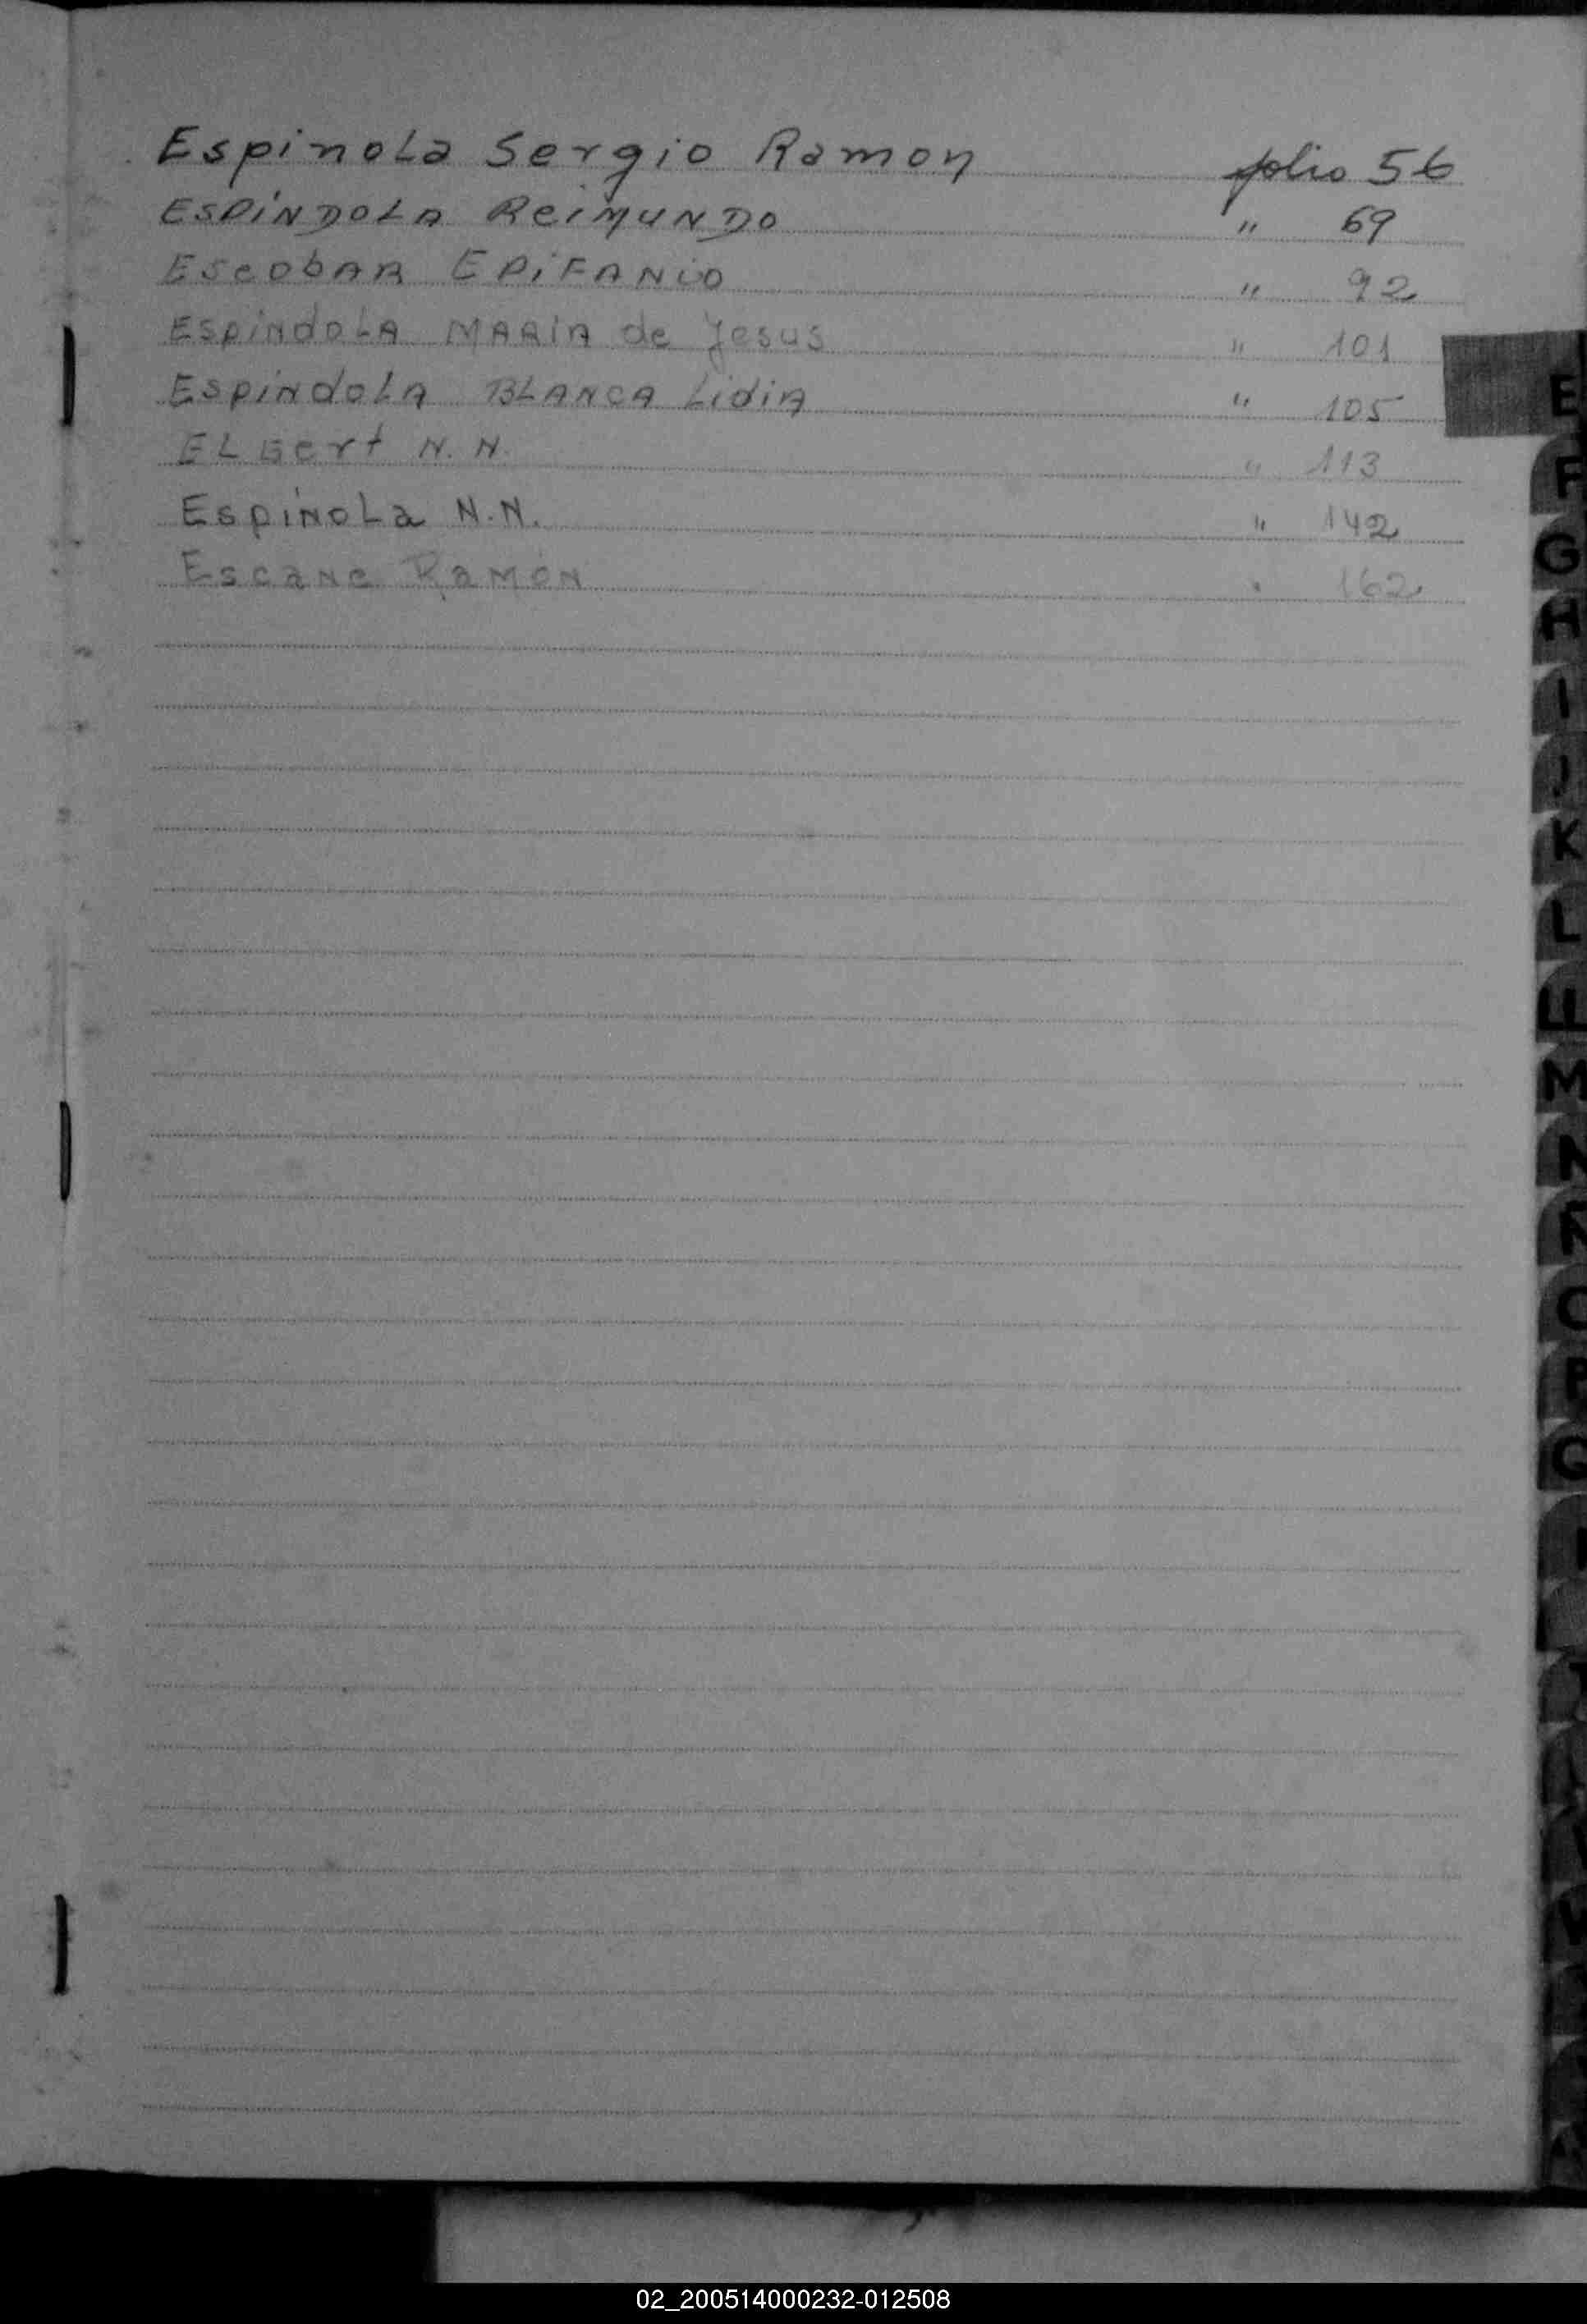 Espinola Sergio Ramon folio 56
ESPiNDOLA ReiMUNDO " 69
EscobAR EPiFANiO " 92
EspindoLA MARiA de Jesus " 101
EspindoLA BLANCA LidiA " 105
ELGert N.N. " 113
EspiNoLa N.N. " 142
Escane RaMON " 162
E
F
G
H
I
J
K
L
LL
M
N
Ñ
O
P
Q
02_200514000232-012508